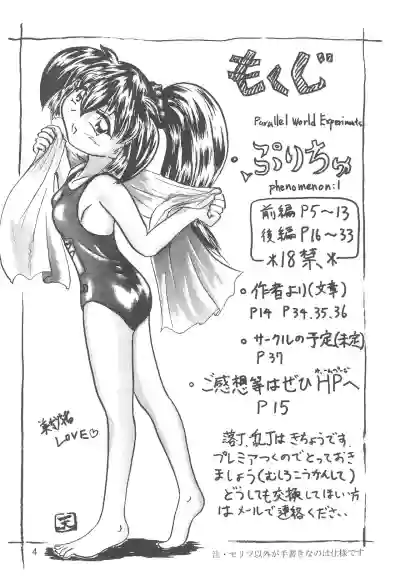 もくじ
Parallel World Experiments
ぷりちゅ
phenomenon:1
前編 P5～13
後編 P16～33
*18禁、*
・作者より(文章)
P14 P34.35.36
・サークルの予定(未定)
P37
・ご感想等はぜひHPへ
P15
LOVE♡
落丁、乱丁はきちょうです。
プレミアつくのでとっておき
ましょう(むしろこうかんして)
どうしても交換してほしい方
はメールで連絡ください。
天
4
注・セリフ以外が手書きなのは仕様です